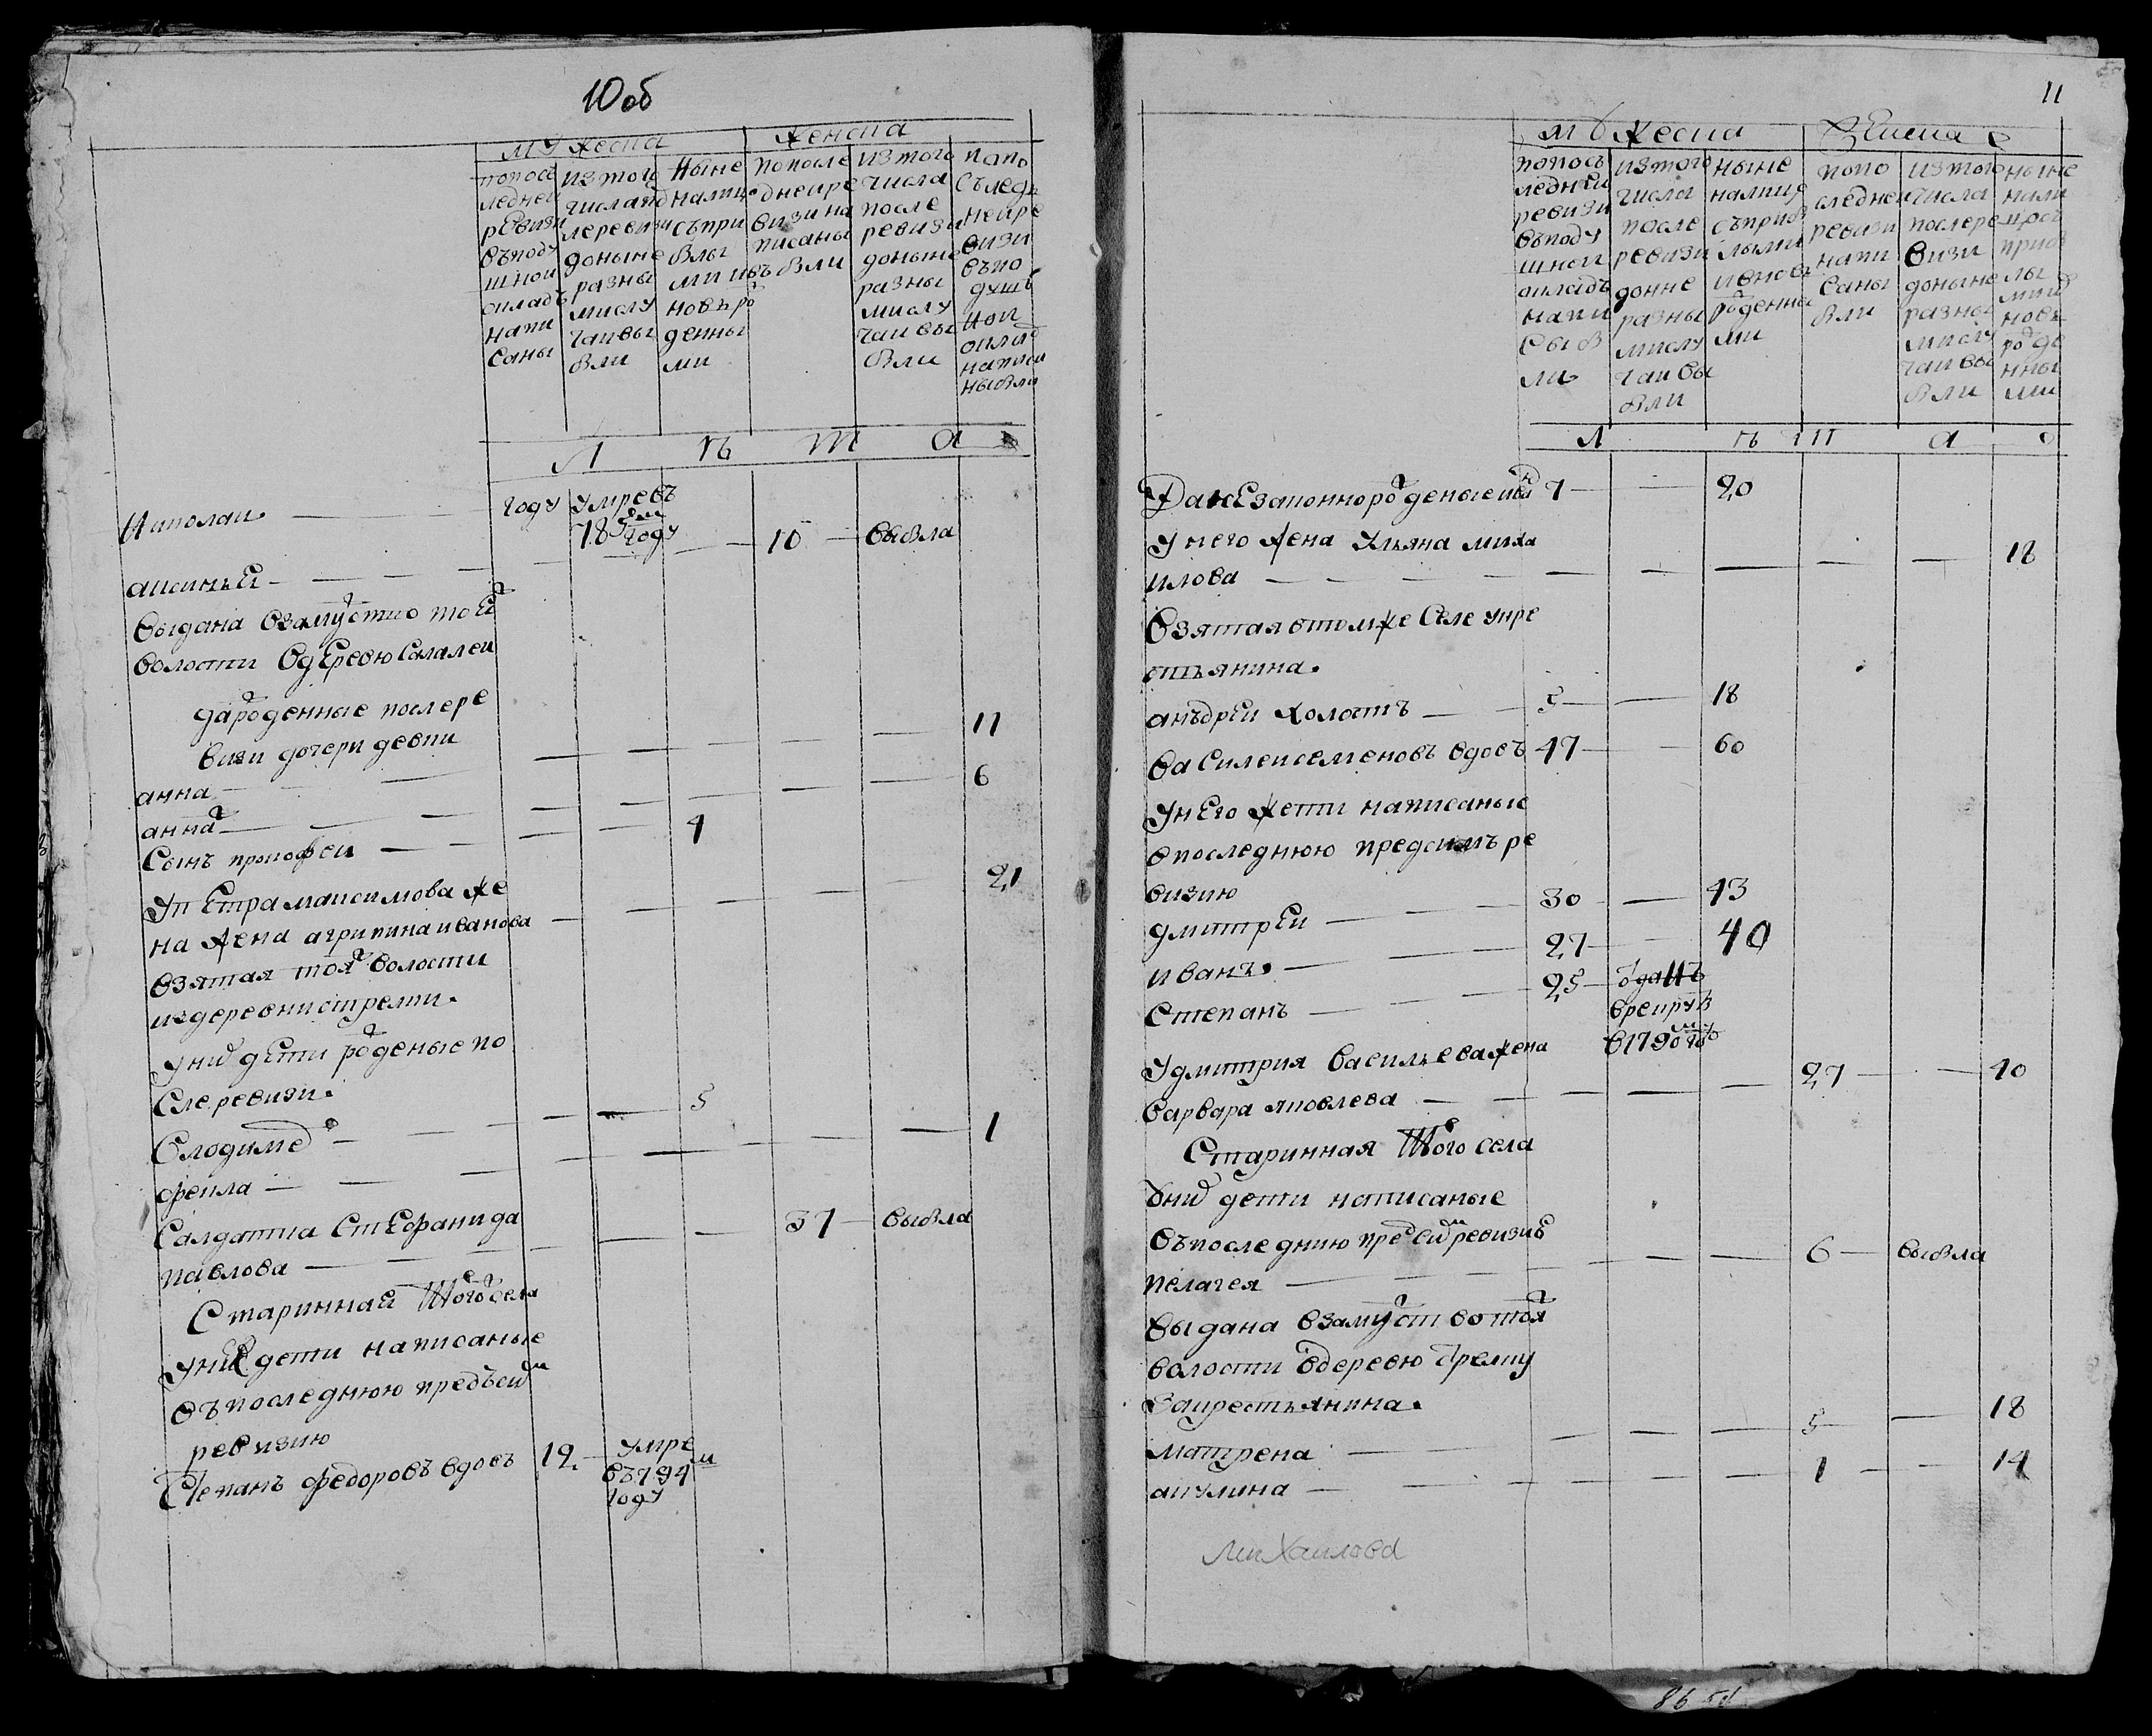 10об
мужеска женска
попосе
ледней
ревизи
въподу
шной
окладъ
напи
саны
изтого
числапо
леревизи
доныне
разны
мислу
чаивы
бли
ныне
налице
съпри
блы
ми ивъ
новъро
денны
ми
попосле
днейре
визина
писаны
бли
изтого
числа
после
ревизи
доныне
разны
мислу
чаивы
бли
попо
следн
нейре
визи
въпо
душъ
ной
оклад
написа
ныбли
Л ѣ т а
Николаи году умре въ
785м году
аксинья 10 выбла
выдана взамуство той
волости вдеревю
дароденные послере
визи дочери девки
анна 11
анна 6
Сынъ прокофеи 4
Упетрамаксимова же
на жена агрипинаиванова 21
взятая тоя волости
издеревнистрелки.
уних дети роденые по
слеревизи.
Володимер 5
фекла 1
Салдатка Стефанида
павлова 37 выбла
Стариннай того села
уних дети написаные
въпоследнюю предъсим
ревизию
Степанъ федоровъ вдовъ 12 умре
въ794м
году

11
мужеска женска
попосъ
ледней
ревизи
въподу
шной
окладъ
напи
сыб
ли
изтого
числа
после
ревизи
донне
разны
мислу
чаивы
бли
ныне
налице
съприб
лыми
ивновъ
роденны
ми
попо
следней
ревизи
напи
саны
бли
изтого
числа
послере
визи
доныне
разны
мислу
чаивы
бли
ныне
нали
цосъ
приб
лы
ми
новъ
роде
нны
ми
Л ѣ т а
Данезаконнороденые 7 20
унего жена Ульяна миха
илова 18
Взятаявтомже селе укре
стьянина.
анъдреи холостъ 5 18
Василеисеменовъ вдовъ 47 60
унего дети написаные
впоследнюю предсимъ ре
визию
дмитреи 30 43
иванъ. 27 40
Степанъ 25 оданъ
врекруты
в1790м году
Удмитрия васильева жена
варвара яковлева 27 40
Старинная того села
уних дети написаные
въпоследнию пред сим ревизию
пелагея 6 выбла
выдана взамуство тоя
волости вдеревю стрелку
закрестьянина.
матрена 5 18
акулина 1 14
Михаилова